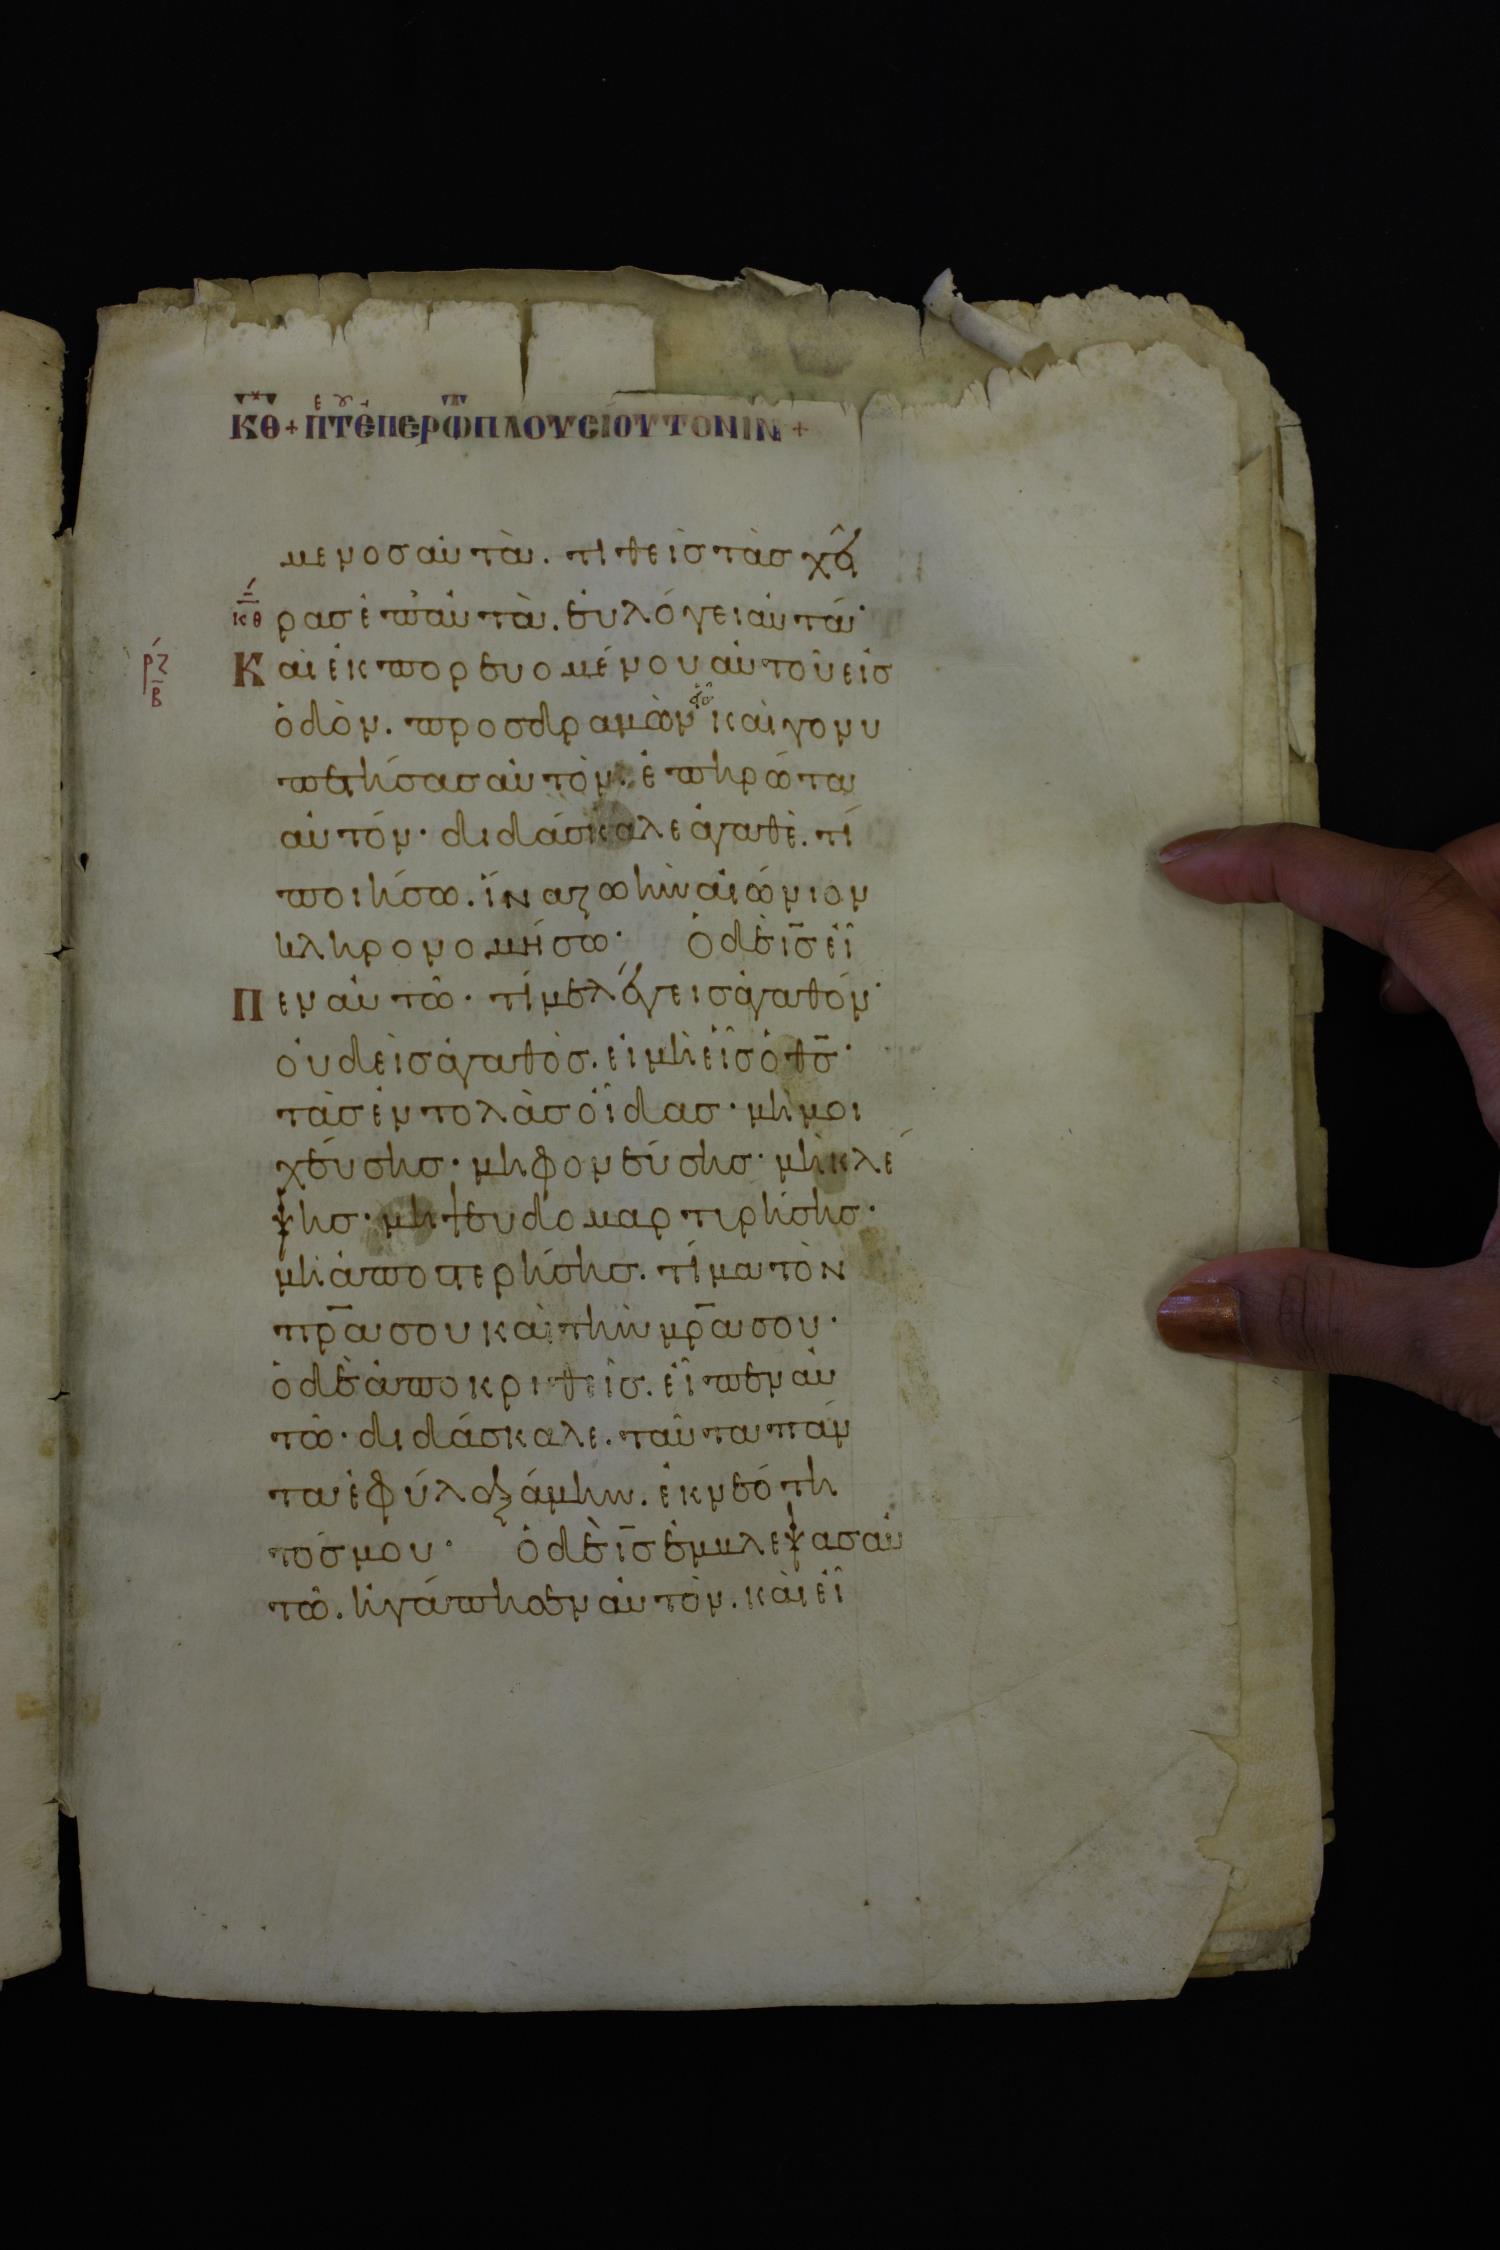 ΚΘ + Π Τ ΕΠΕΡΩ ΠΛΟΥΣΙΟΥ ΤΟΝ ΙΝ +
μενος αὐτὰ. τίθει ὶς τὰς χεῖ
κθ ρας ἐπ' αὐτὰ. ευλόγει αὐτά·
ρζ β Καὶ ἐκπορευομένου αὐτοῦ εἰς
ὁδὸν. προσδραμὼν καὶ γονυ
πετήσας αὐτὸν. ἐπηρώτα
αὐτόν· διδάσκαλε ἀγαθὲ. τί
ποιήσω. ἵνα ζωὴν αἰώνιον
κληρονομήσω· Ὁ δὲ ις εἶ
Πεν αὐτῶ· τί με λέγεις ἀγαθόν·
οὐδεὶς ἀγαθὸς. εἰ μὴ εἷς ὁ θς·
τὰς ἐντολὰς οἶδας· μὴ μοι
χεύσης· μὴ φονεύσης· μὴ κλέ
ψης· μὴ ψευδομαρτιρήσης·
μὴ ἀποστερήσης. τίμα τὸν
πρα σου καὶ τὴν μρα σου·
ὁ δὲ ἀποκριθεὶς. εἶπεν αὐ
τῶ· διδάσκαλε. ταῦτα πάν
τα ἐφυλαξάμην. ἐκ νεότη
τός μου· ὁ δὲ ις ἐμβλεψας αὐ
τῶ. ἠγάπησεν αὐτὸν. καὶ εἶ